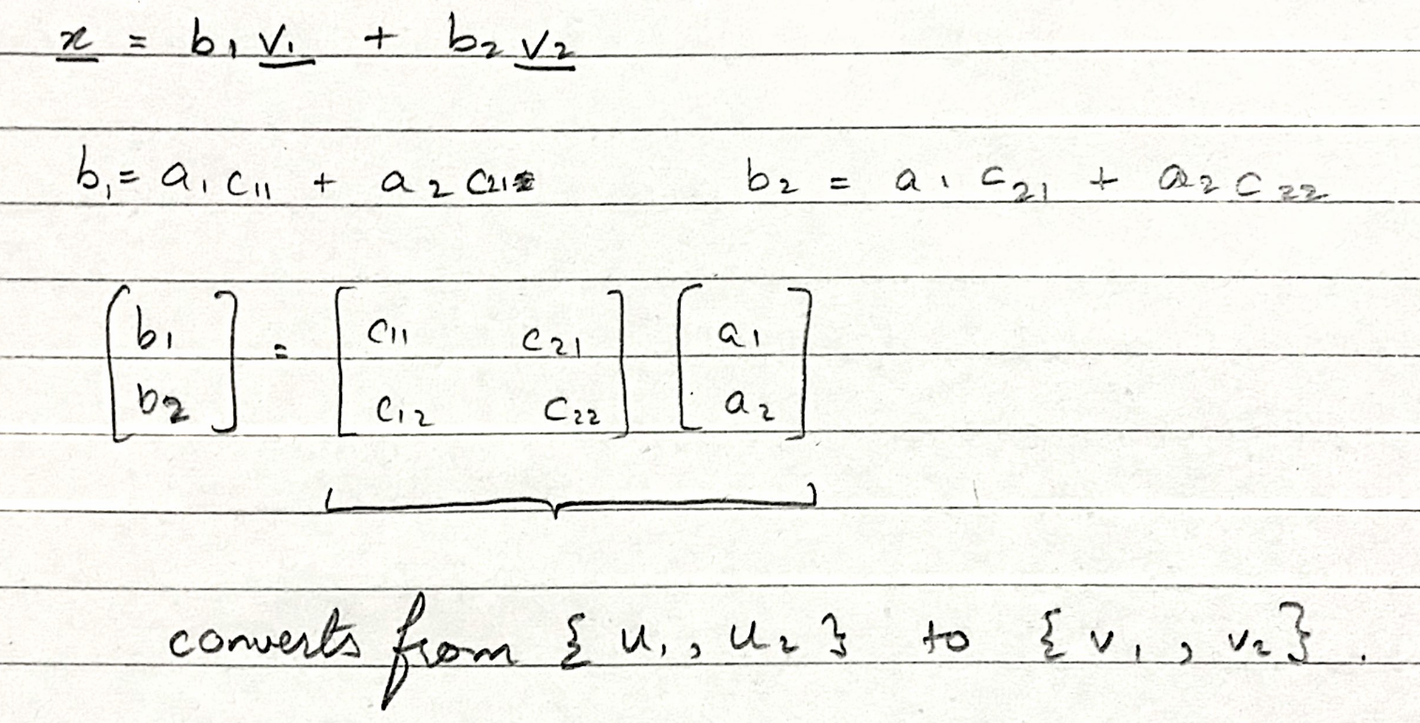 x = b₁ v₁ + b₂ v₂
b₁ = a₁ c₁₁ + a₂ c₂₁ b₂ = a₁ c₂₁ + a₂ c₂₂
[b₁ b₂] = [c₁₁ c₂₁ c₁₂ c₂₂] [a₁ a₂]
converts from {u₁, u₂} to {v₁, v₂}.